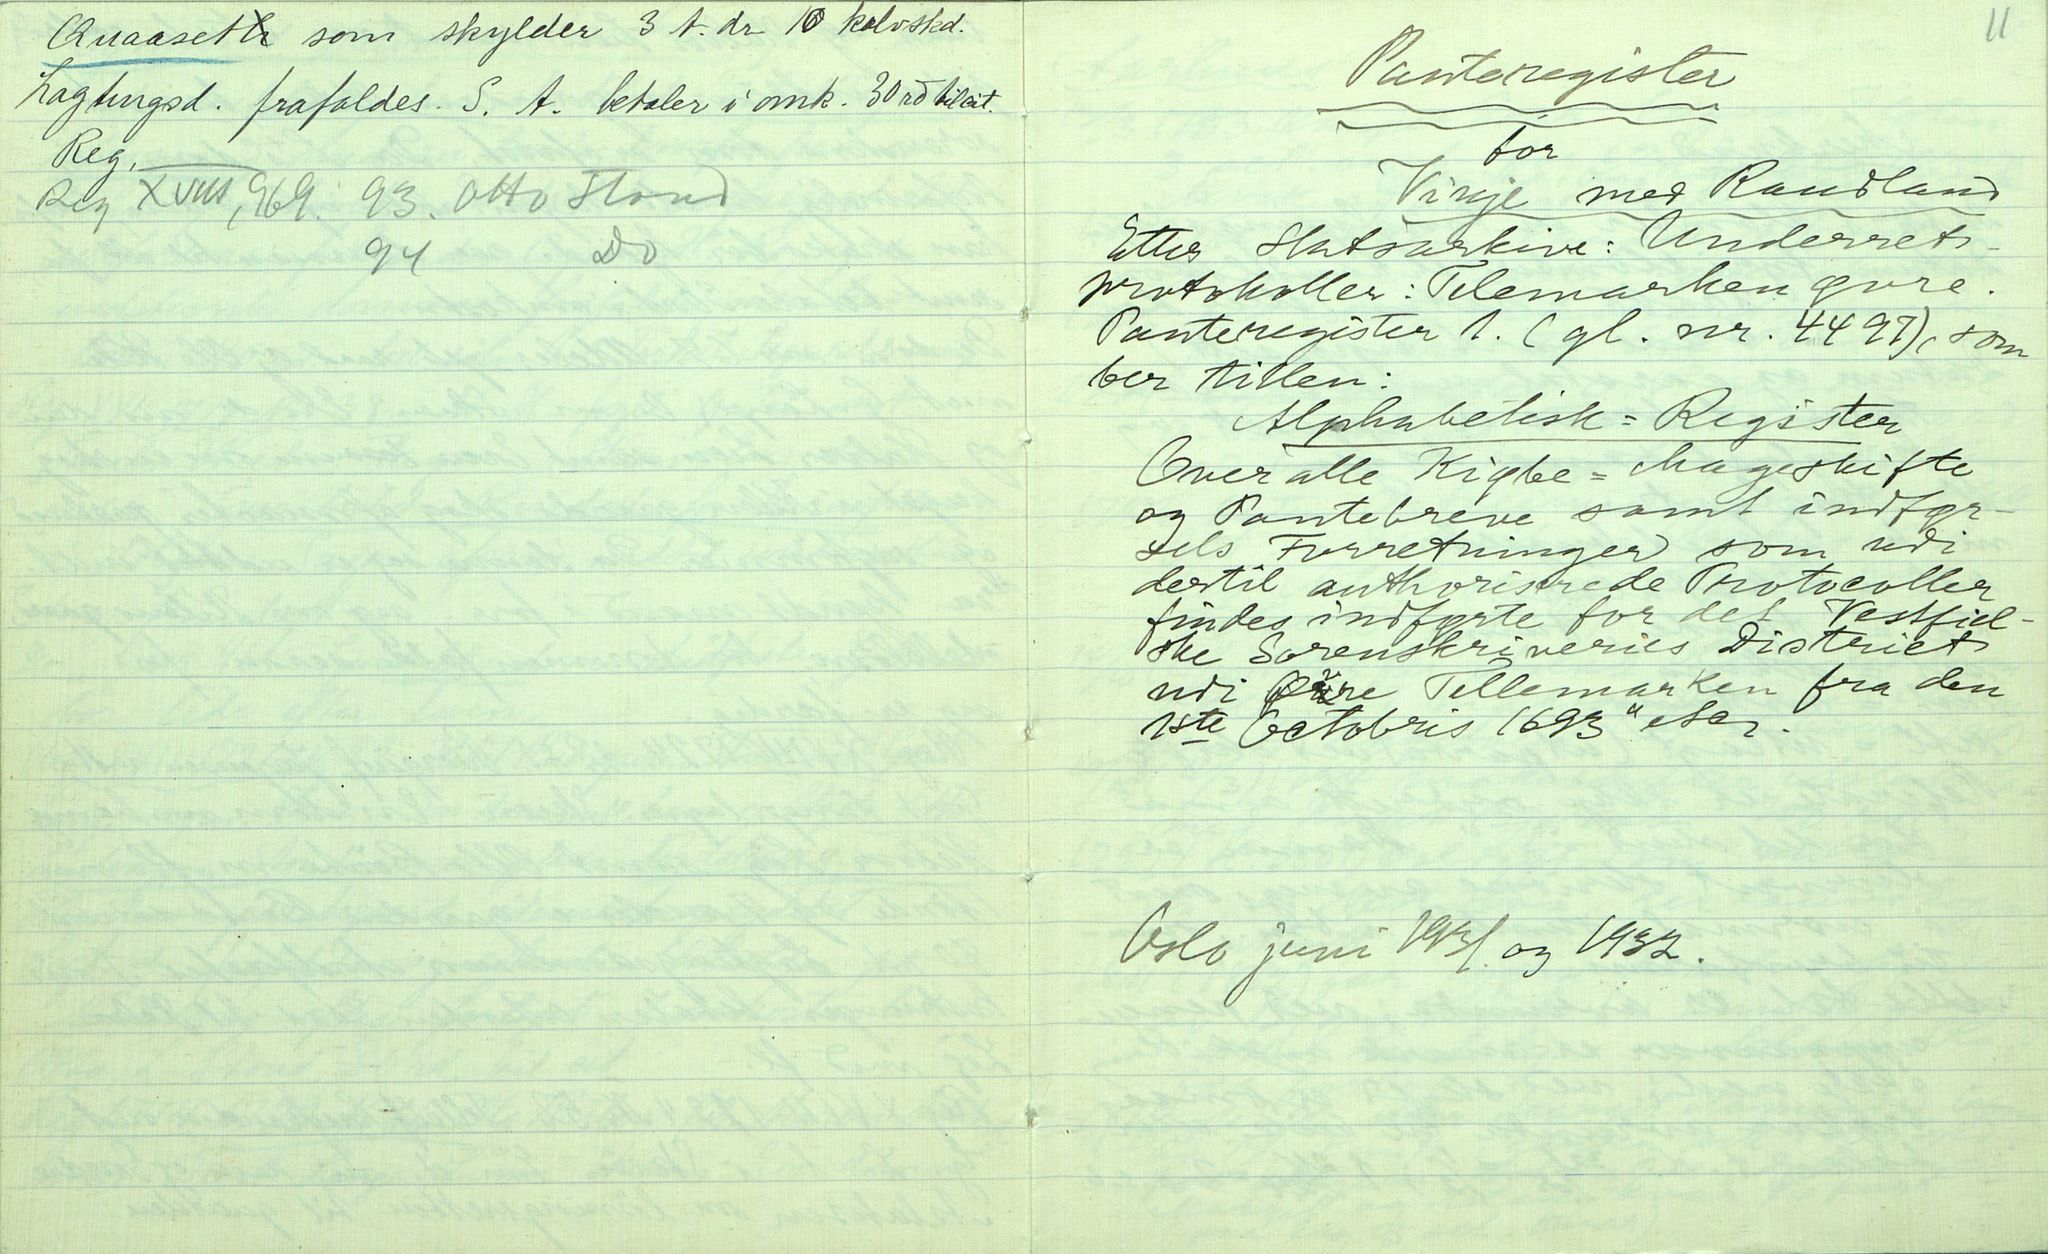 Quaaseth som skylder 3 t. dr 10 kalvskd.
Lagtingsd. frafaldes. S. A. betaler i omk. 30 rd
Reg.
Reg XVIII, 969. 93. Otto Stond
94 Do
11
Panteregister
for
Vinje med Raudland
Etter Statsarkive: Underrets-
protokoller: Telemarken øvre.
Panteregister 1. (gl. nr. 4497), som
ber titlen:
Alphabetisk = Register
Over alle Kiøbe = Mageskifte
og Pantebreve samt indfør-
sels Forretninger som udi
dertil authoriserede Protocoller
findes indførte for det Vestfiel-
ske Sorenskriveries District
udi Øvre Tellemarken fra den
1ste Octobris 1693"
Oslo juni 1931. og 1932.